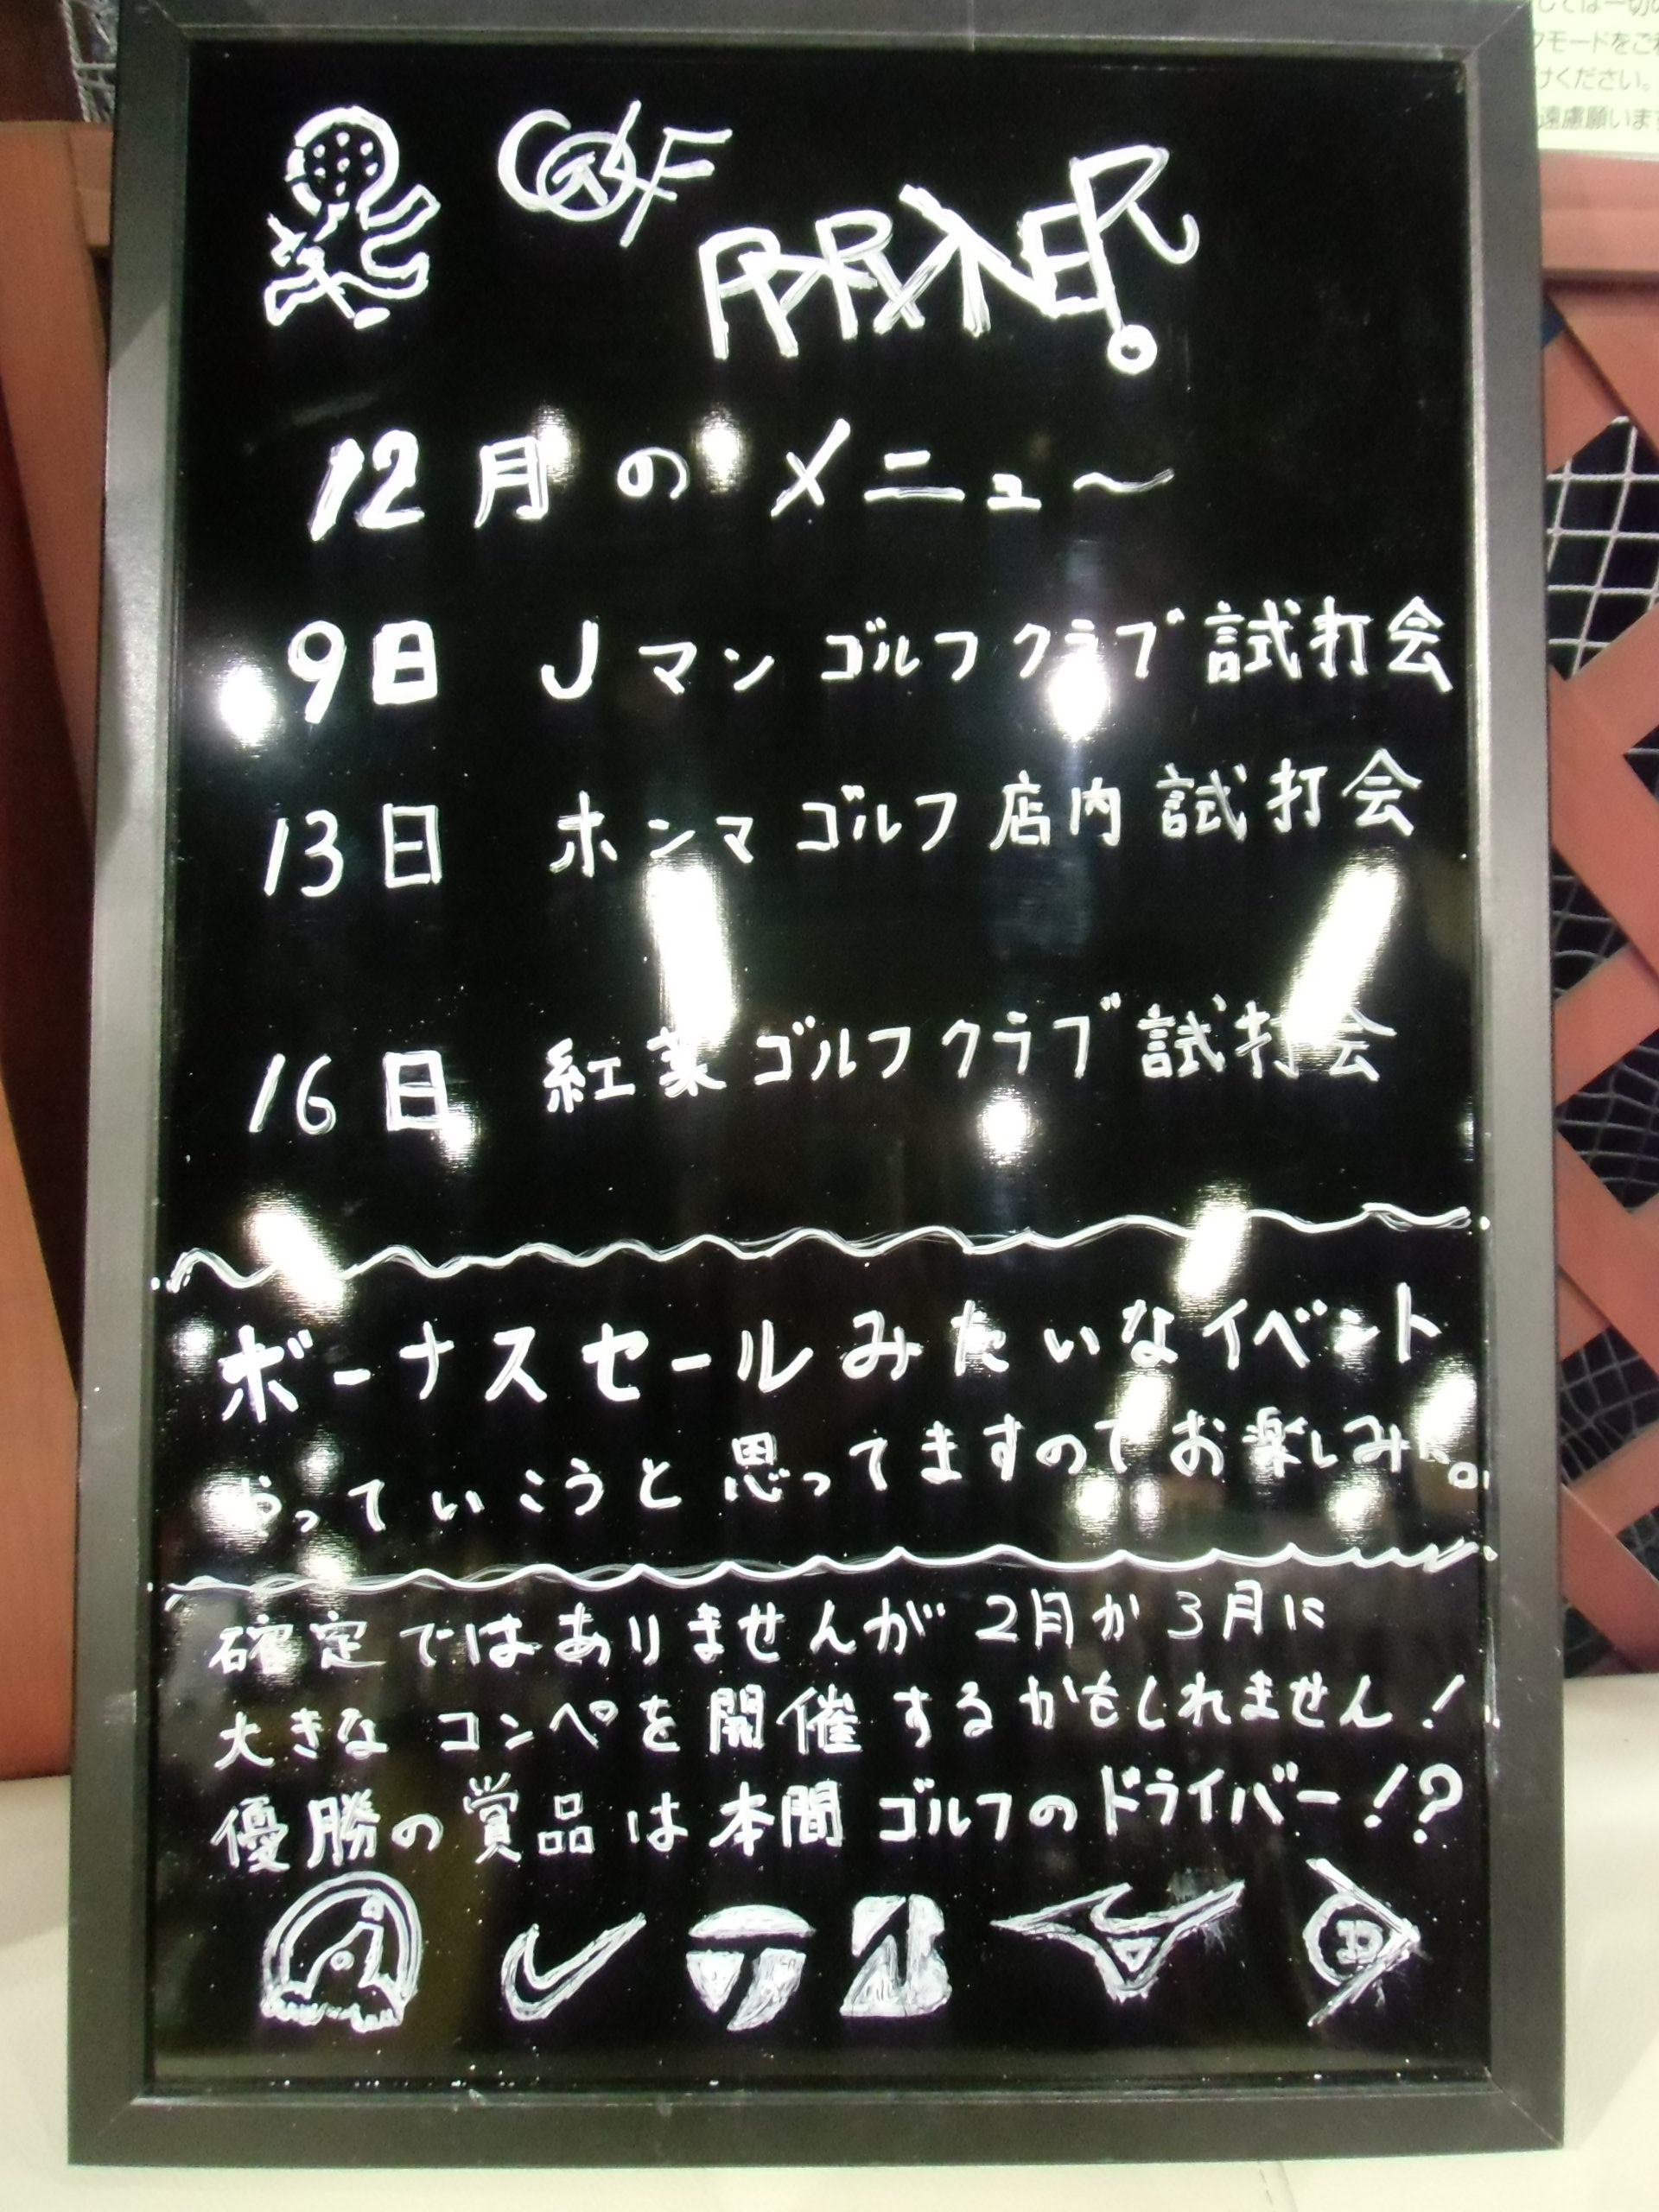 GOLF
PARTNER
12月のメニュ～
9日 Jマン ゴルフクラブ試打会
13日 ホンマゴルフ店内試打会
16日 紅葉ゴルフクラブ試打会
ボーナスセールみたいなイベント
やっていこうと思ってますのでお楽しみに。
確定ではありませんが2月か3月に
大きなコンペを開催するかもしれません!
優勝の賞品は本間ゴルフのドライバー!?
しては一切の
クモードをご利
けください。
遠慮願います